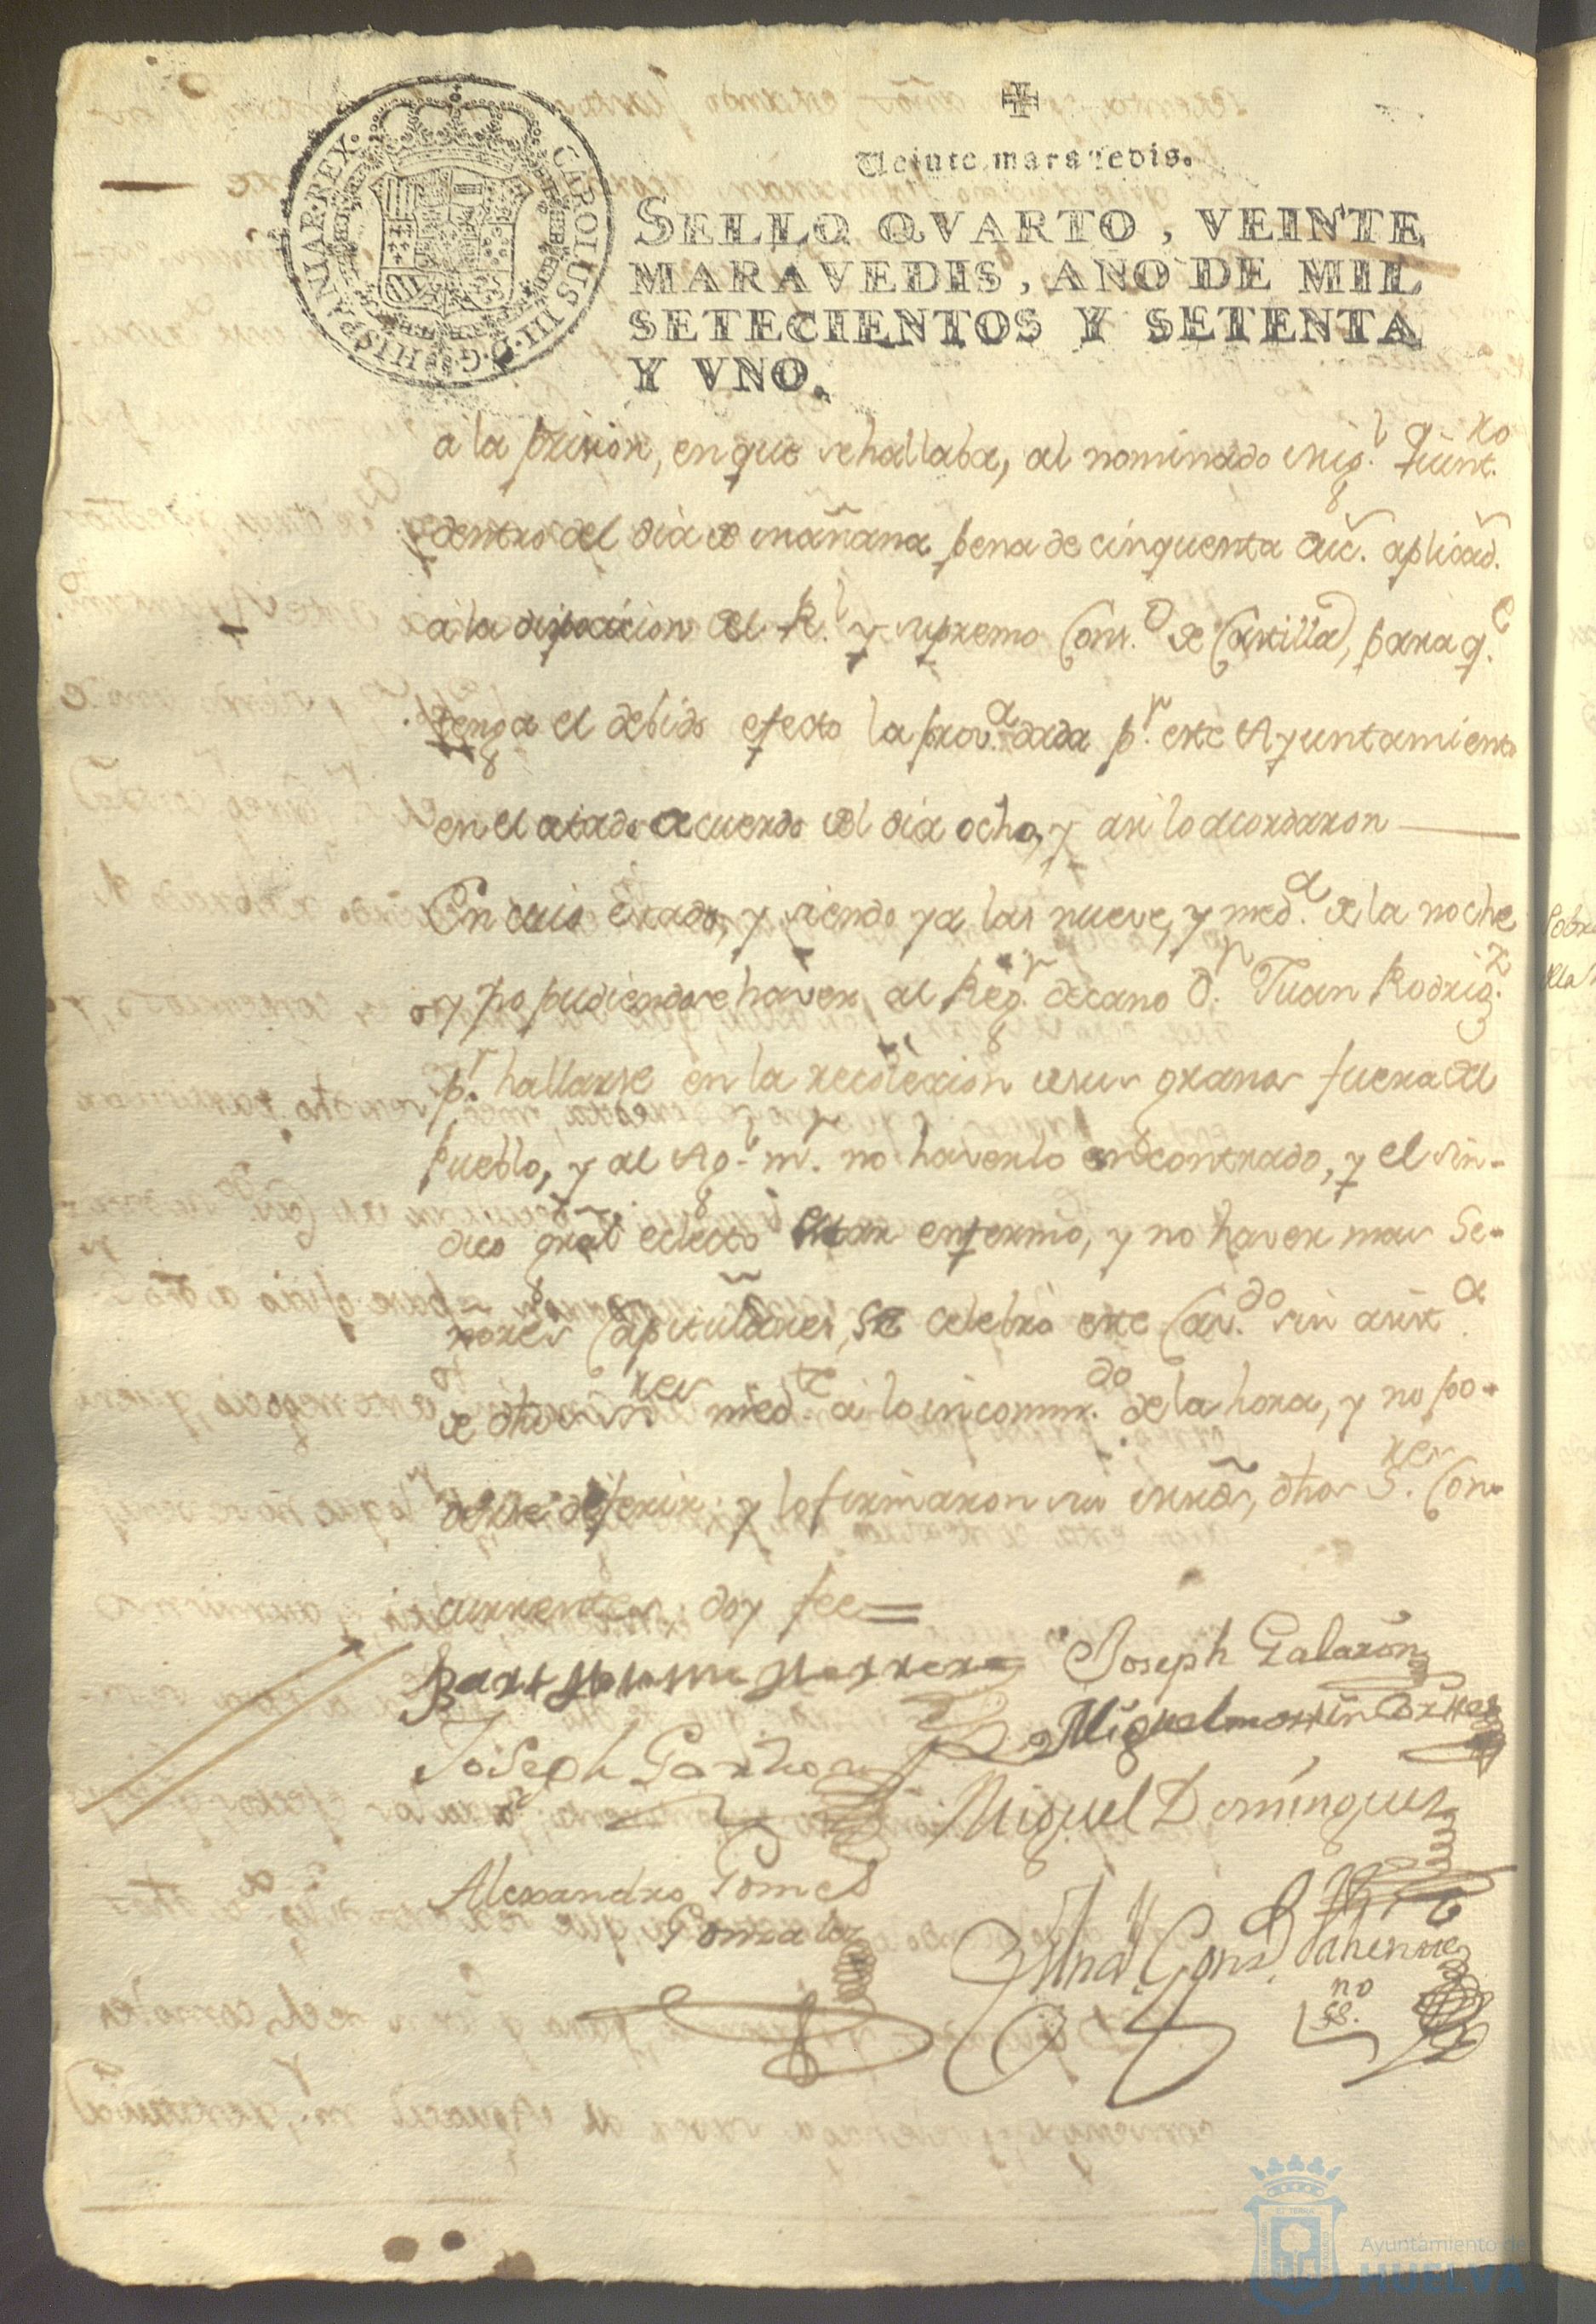 CAROLUS III D.G. HISPANIAR. REX.
Veinte maravedis.
SELLO QVARTO, VEINTE
MARAVEDIS, AÑO DE MIL
SETECIENTOS Y SETENTA
Y VNO.
a la prision, en que se hallaba, al nominado Mig.l Quint.ro
dentro del dia de mañana pena de cinquenta duc. aplicad.
a la disposicion del R.l y supremo Cons.o de Castilla, para q.e
tenga el debido efecto la prov.a dada p.r este Ayuntamiento
en el citado acuerdo del dia ocho, y asi lo acordaron
En cuio estado, y siendo ya las nueve, y med.a de la noche
y no pudiendose haver al Reg.r decano D.n Juan Rodrig.z
p.r hallarse en la recoleccion de sus granos fuera del
pueblo, y al Ag.l m.r no haverlo encontrado, y el sin-
dico gral electo estar enfermo, y no haver mas Se-
ñores Capitulares, se celebró este Cav.do sin asist.a
de dhos S.res med.te a lo incomm.do de la hora, y no po-
derse diferir; y lo firmaron sus mrds, dhos S.res Con-
currentes doy fee =
Barttholome Herrera Joseph Galazon
Joseph Garzhon Miguel martin Corttes
Miguel Dominguez
Alexandro Gomes
Gonzales
no
Ayuntamiento de
HUELVA